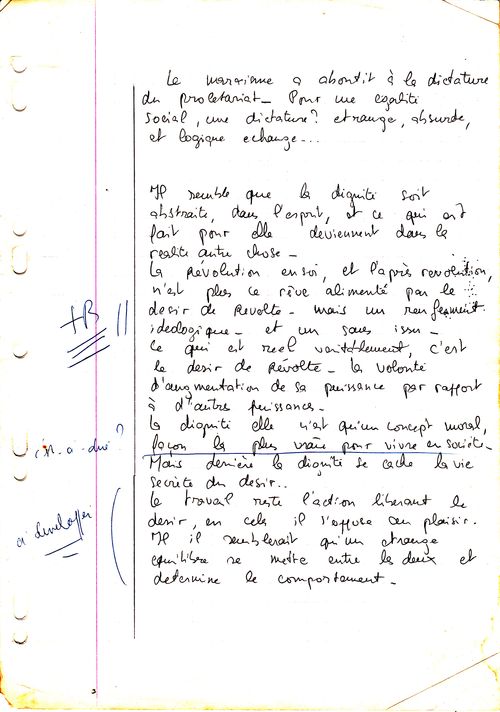 Le marxisme a aboutit à la dictature
du proletariat_ Pour une egalité
social, une dictature? etrange, absurde,
et logique echange...
Il semble que la dignité soit
abstraite, dans l'esprit, et ce qui est
fait pour elle deviennent dans la
realité autre chose_
La Révolution en soi, et l'après revolution,
n'est plus ce rêve alimenté par le
desir de Revolte_ mais un renferment
ideologique_ et un sans issu_
Ce qui est reel veritablement, c'est
le desir de Révolte_ la volonté
d'augmentation de sa puissance par rapport
à d'autres puissances_
TB
la dignité elle n'est qu'un concept moral,
façon la plus vraie pour vivre en société_
c'est-à-dire?
Mais derrière la dignité se cache la vie
secrète du desir..
Le travail reste l'action liberant le
desir, en cela il s'oppose au plaisir.
Il il semblerait qu'un etrange
equilibre se mette entre les deux et
determine le comportement_
à developper